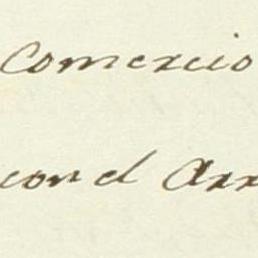 Comercio
con el Arr